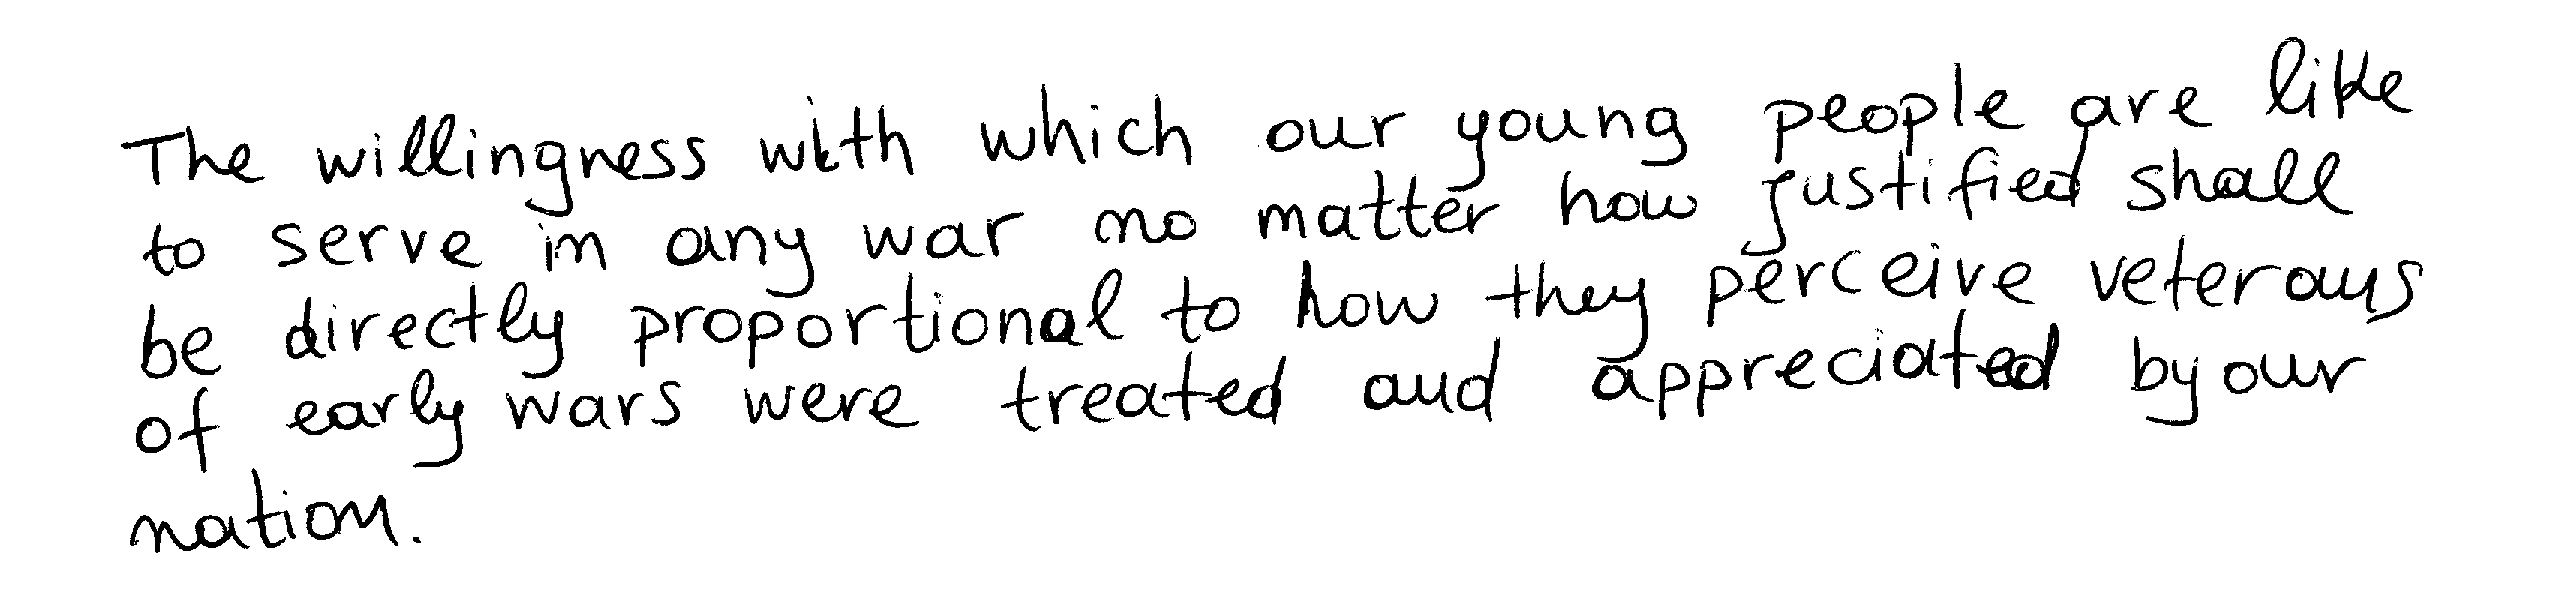 The willingness with which our young people are like
to serve in any war no matter how justified shall
be directly proportional to how they perceive veterans
of early wars were treated and appreciated by our
nation.